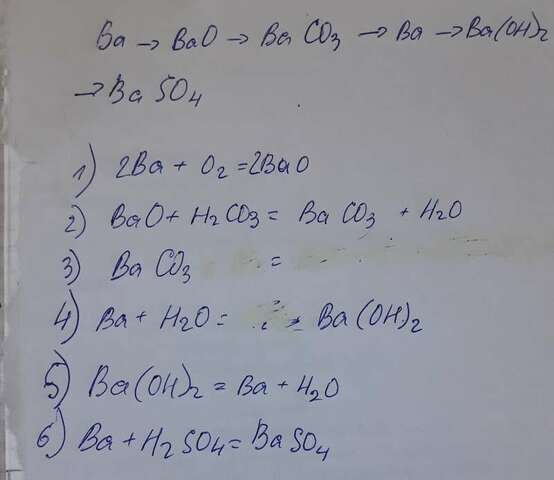 Ba → BaO → BaCO3 → Ba → Ba(OH)2
→ BaSO4
1) 2Ba + O2 = 2BaO
2) BaO + H2CO3 = BaCO3 + H2O
3) BaCO3 =
4) Ba + H2O = Ba(OH)2
5) Ba(OH)2 = Ba + H2O
6) Ba + H2SO4 = BaSO4